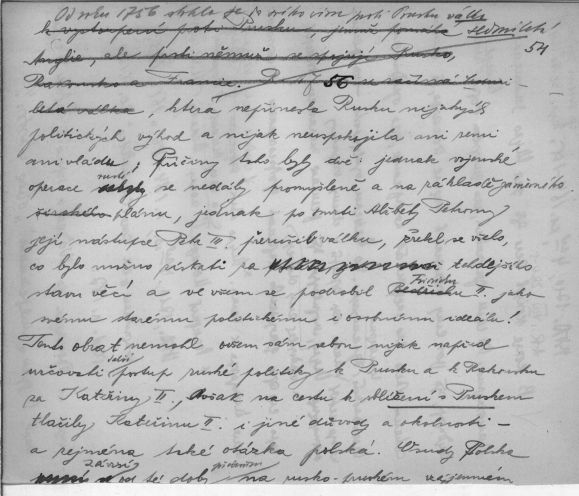 Od roku 1756 strhla se po svého vim proti Prusku válka
k vystoupení proti Prusku, jemuž pomáhá sedmiletá
54
Anglie, ale proti němuž se spojují Rusko,
Rakousko a Francie. R. 1756 se začíná sedmi-
letá válka, která nepřinesla Rusku nijakých
politických výhod a nijak neuspokojila ani zemi
ani vládu; Příčiny toho byly dvě: jednak vojenské
operace ruské se nedály promyšleně a na základě záměrného
plánu, jednak po smrti Alžběty Petrovny
její nástupce Petr III. přerušil válku, zřekl se všeho,
co bylo možno získati za tehdejšího
stavu věcí a ve všem se podrobil Fridrichu II. jako
svému starému politickému i osobnímu ideálu!
Tento obrat nemohl ovšem sám sebou nijak napřed
určovati další postup ruské politiky k Prusku a k Rakousku
za Kateřiny II., avšak na cestu k sblížení s Pruskem
tlačily Kateřinu II. i jiné důvody a okolnosti –
a zejména také otázka polská. Osudy Polska
závisí od té doby především na rusko-pruském vzájemném